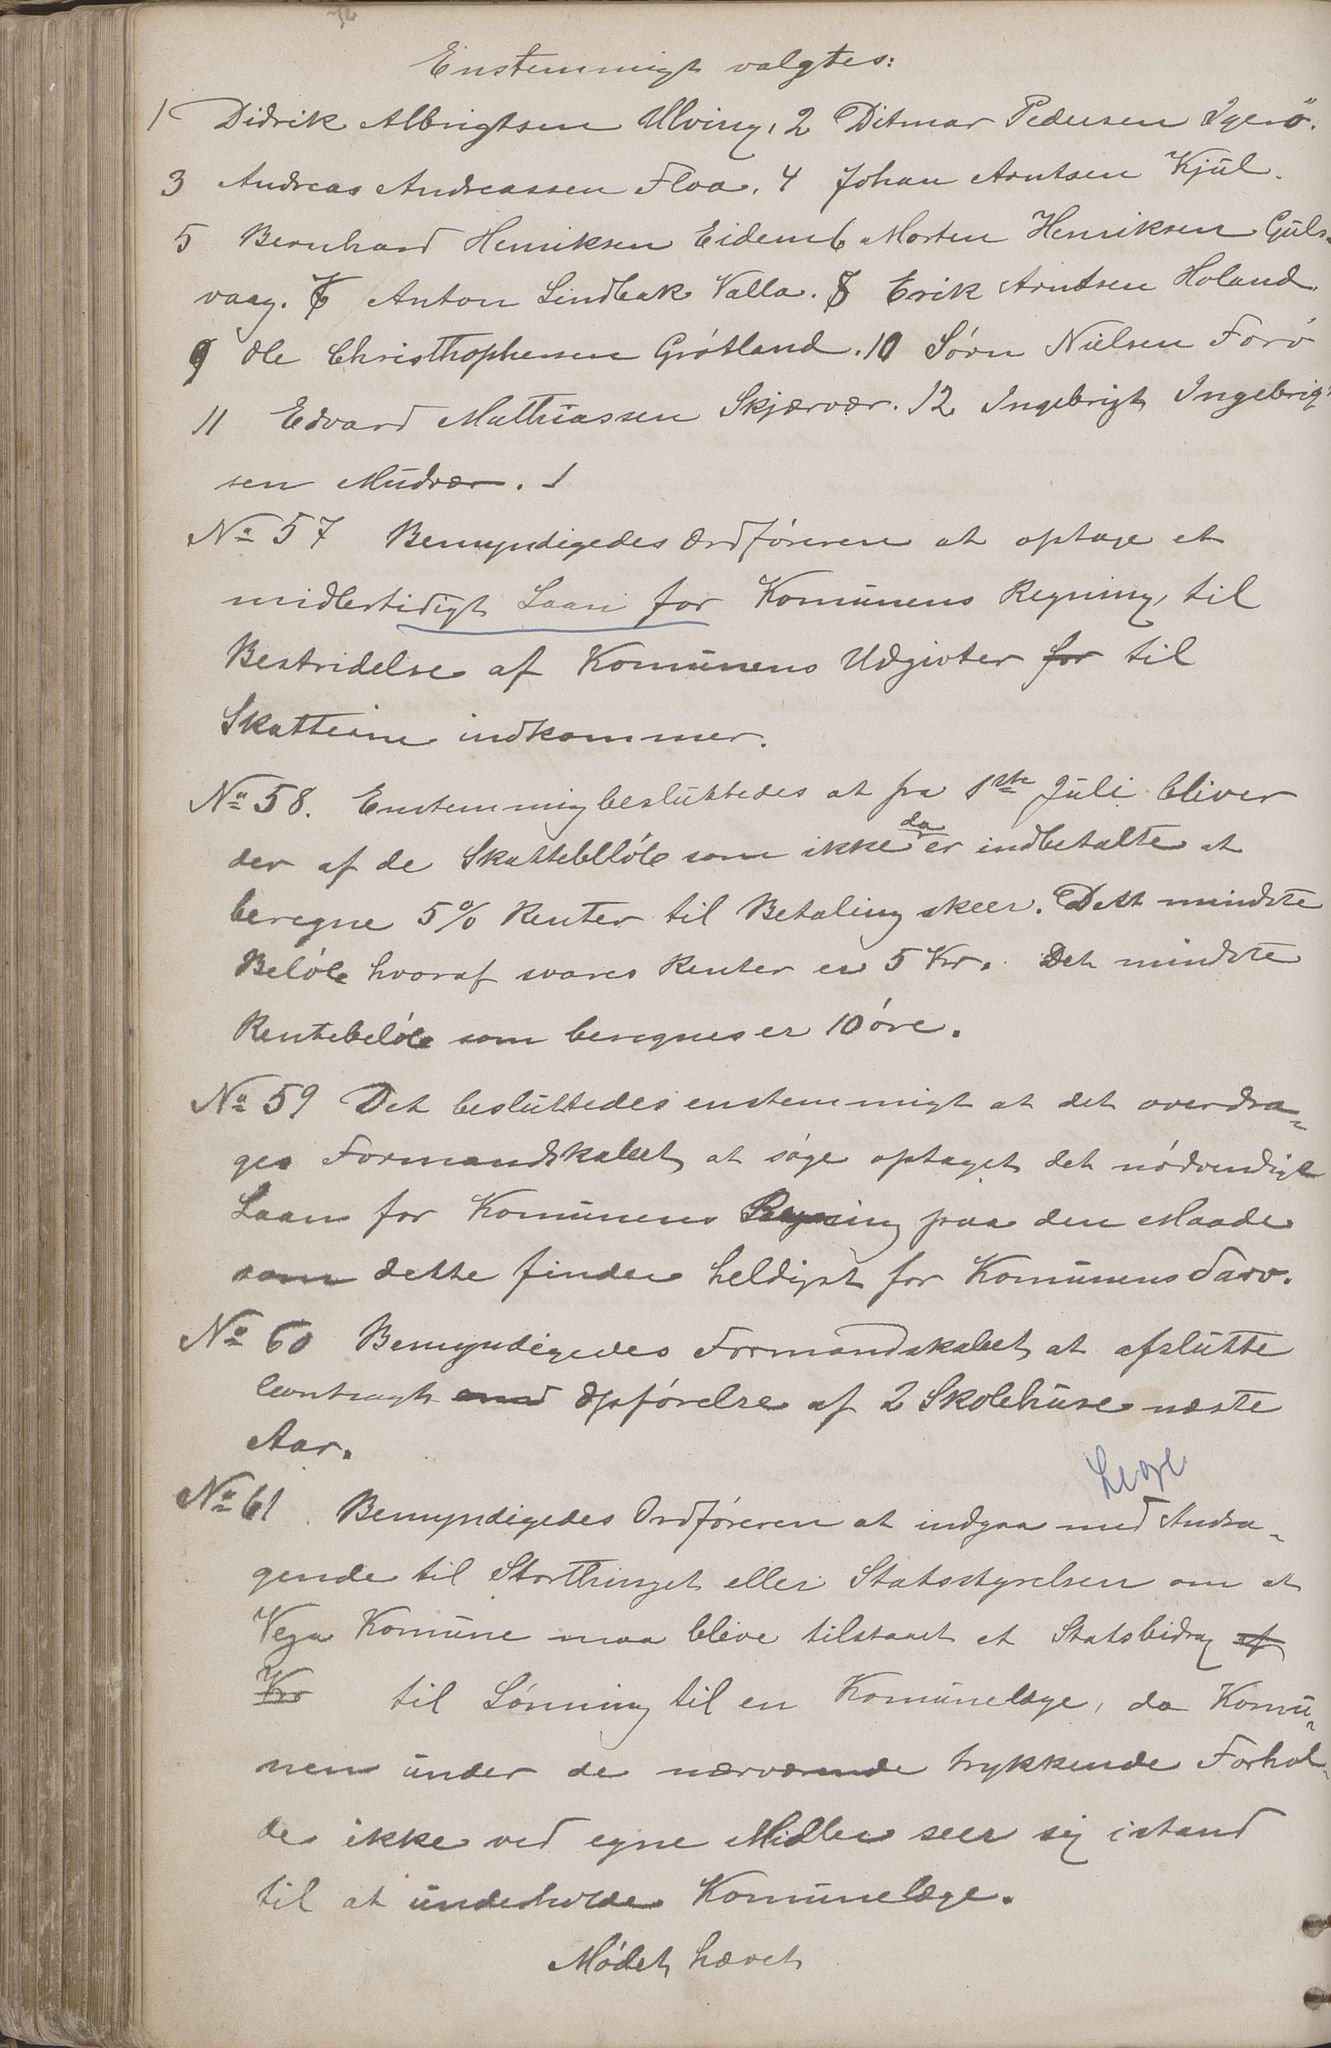 Enstemmigt valgtes:
1 Didrik Albrigtsen Ulving, 2 Ditmar Pedersen Igerö.
3 Andreas Andreassen Floa. 4 Johan Arntsen Kjül.
5 Bernhard Henriksen Eidem 6 Morten Henriksen Güls-
vaag. 7 Anton Lindbak Valla. 8 Erik Arntsen Holand.
9 Ole Christhophersen Grótland. 10 Sórn Nielsen Foró
11 Edvard Mathiassen Skjærvær. 12 Ingebrigt Ingebrigt
sen Müdvær.
No 57 Bemyndigedes Ordfóreren at optage et
midlertidigt Laan for Komünens Regning, til
Bestridelse af Komünens Udgivter for til
Skatterne indkommer.
No 58. Enstemmig beslüttedes at fra 1ste Jüli bliver
der af de Skattebllób som ikke da er indbetalte at
beregne 5% Renter til Betaling skeer. Dett mindste
Belób hvoraf svares Renter er 5 Kr. Det mindste
Rentebelób som beregnes er 10 óre.
No 59 Det beslüttedes enstemmigt at det overdra-
ges Formandskabet at sóge optaget det nódvendige
Laan for Komünens Regning paa den Maade
som dette finder heldigst for Komünens Tarv.
No 60 Bemyndigedes Formandskabet at afslütte
Contragt Opfórelse af 2 Skolehüse næste
Aar.
Lege
No 61 Bemyndigedes Ordfóreren at indgaa med Andra-
gende til Storthinget eller Statsstyrelsen om at
Vega Komüne maa blive tilstaaet et Statsbidrag af
Kr til Lónning til en Komünelæge, da Komü-
nen ünder de nærværende trykkende Forhol-
de ikke ved egne Midler seer sig istand
til at ünderholde Komünelæge.
Módet hævet